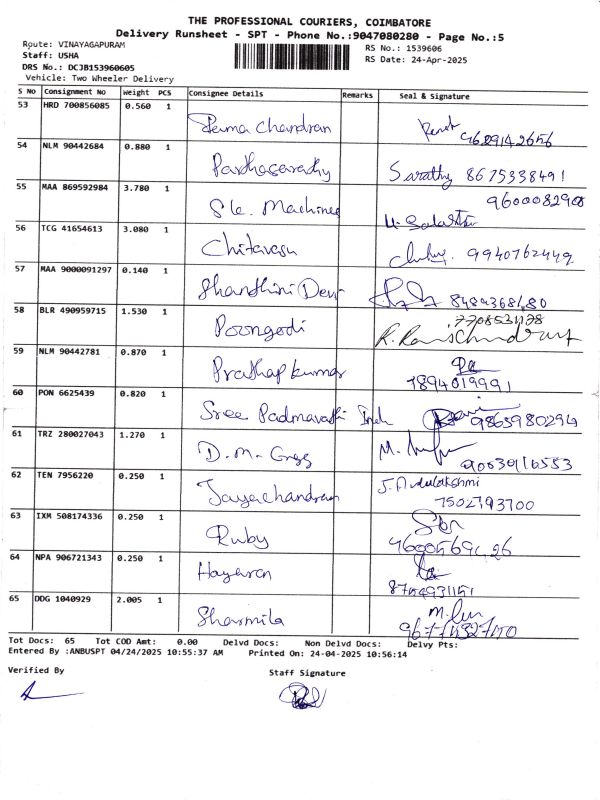 THE PROFESSIONAL COURIERS, COIMBATORE
Delivery Runsheet - SPT - Phone No.:9047080280 - Page No.:5
Route: VINAYAGAPURAM RS No.: 1539606
Staff: USHA RS Date: 24-Apr-2025
DRS No.: DCJB153960605
Vehicle: Two Wheeler Delivery
S No Consignment No Weight PCS Consignee Details Remarks Seal & Signature
53 HRD 700856085 0.560 1 Rama Chandran
54 NLM 90442684 0.880 1 Pardhasarathy Sarathy 8675338491
55 MAA 869592984 3.780 1 Sle. Machines 9600082908
56 TCG 41654613 3.080 1 Chitravasu 9940762449
57 MAA 9000091297 0.140 1 Shanthini Devi
58 BLR 490959715 1.530 1 Poongodi R. Ramachandran
59 NLM 90442781 0.870 1 Prathap kumar 7894019991
60 PON 6625439 0.820 1 Sree Padmavathi 9865980294
61 TRZ 280027043 1.270 1 D.M.
62 TEN 7956220 0.250 1 Jayachandran 7502793700
63 IXM 508174336 0.250 1 Ruby
64 NPA 906721343 0.250 1
65 DDG 1040929 2.005 1 Sharmila
Tot Docs: 65 Tot COD Amt: 0.00 Delvd Docs: Non Delvd Docs: Delvy Pts:
Entered By :ANBUSPT 04/24/2025 10:55:37 AM Printed On: 24-04-2025 10:56:14
Verified By Staff Signature